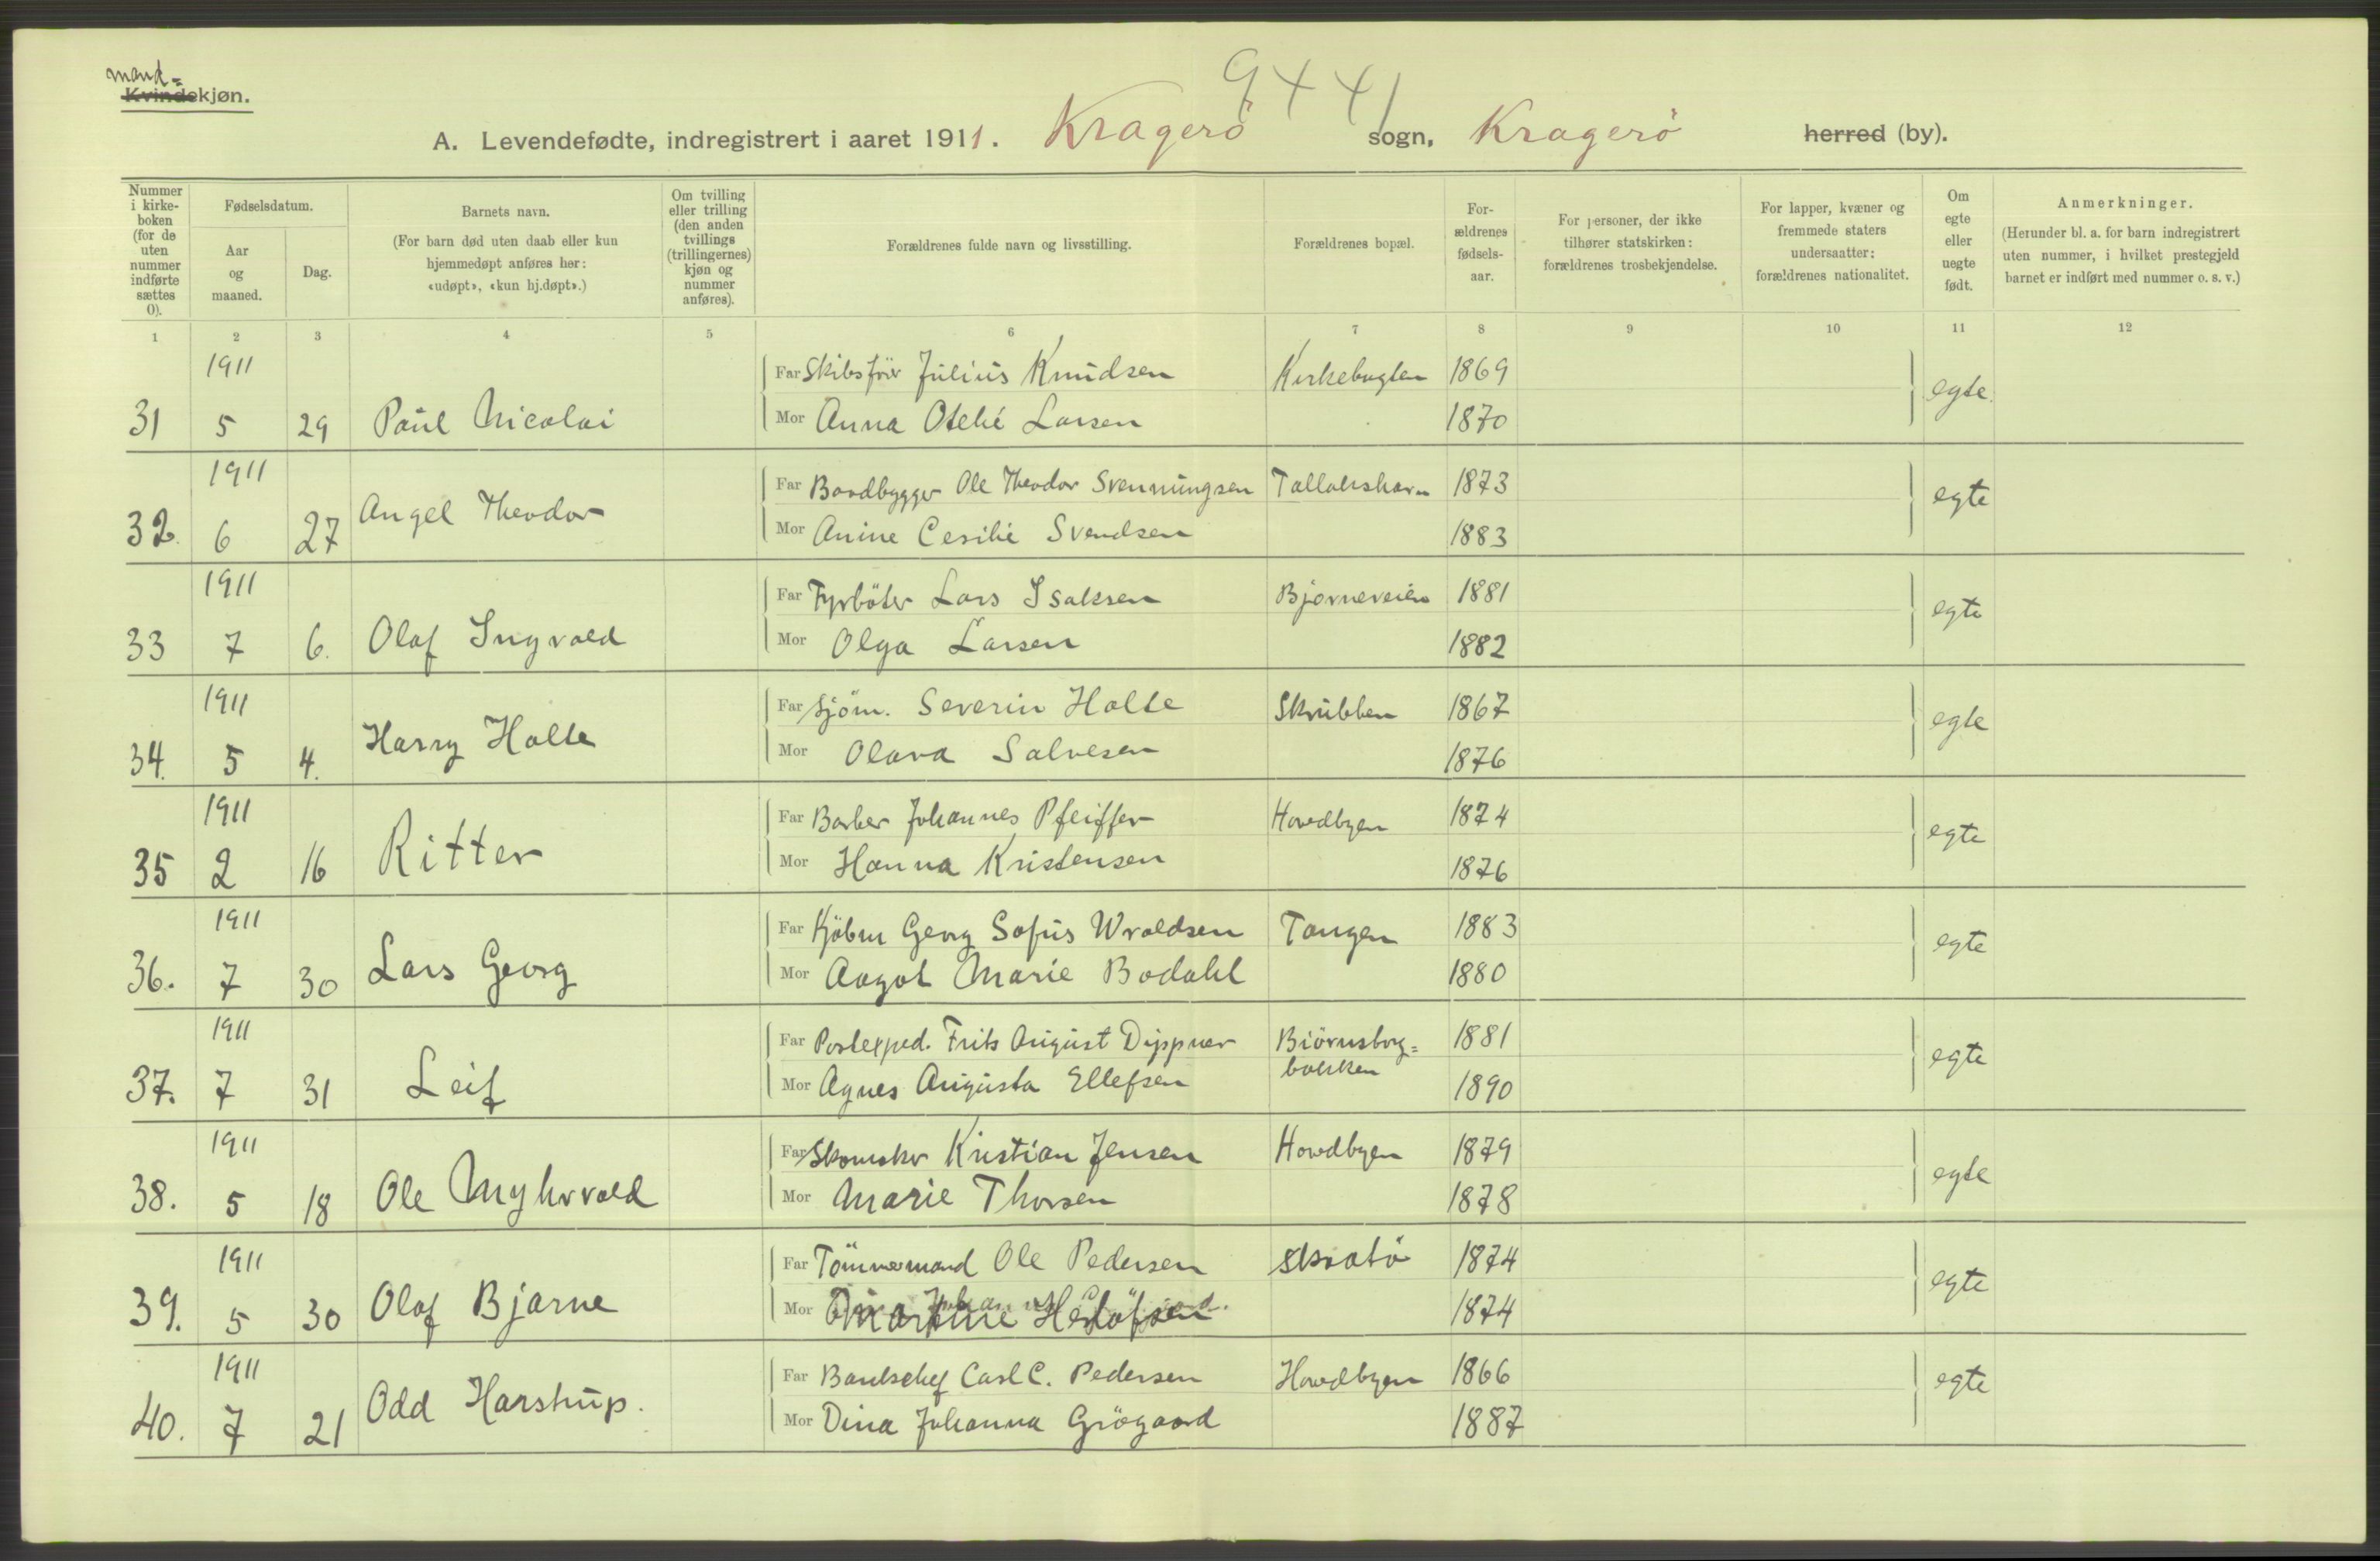 mand=
Kvindekjøn.
9441
A. Levendefødte, indregistrert i aaret 1911. Kragerö sogn, Kragerö herred (by).
Nummer i kirke-boken (for de uten nummer indførte sættes 0).
Fødselsdatum.
Aar og maaned.
Dag.
Barnets navn.
(For barn død uten daab eller kun hjemmedøpt anføres her: «udøpt», «kun hj.døpt».)
Om tvilling eller trilling (den anden tvillings (trillingernes) kjøn og nummer anføres).
Forældrenes fulde navn og livsstilling.
Forældrenes bopæl.
For-ældrenes fødsels-aar.
For personer, der ikke tilhører statskirken: forældrenes trosbekjendelse.
For lapper, kvæner og fremmede staters undersaatter: forældrenes nationalitet.
Om egte eller uegte født.
Anmerkninger.
(Herunder bl. a. for barn indregistrert uten nummer, i hvilket prestegjeld barnet er indført med nummer o. s. v.)
1 2 3 4 5 6 7 8 9 10 11 12
1911 Far Skibsförer Julius Knudsen Kirkebugten 1869
31 5 29 Paul Nicolai Mor Anna Otelie Larsen 1870 egte.
1911 Far Baadbygger Ole Theodor Svenningsen Tallakshavn 1873
32. 6 27 Angel Theodor Mor Anine Cesilie Svendsen 1883 egte
1911 Far Fyrböter Lars Isaksen Bjørneveien 1881
33 7 6. Olaf Ingvald Mor Olga Larsen 1882 egte
1911 Far Sjöm. Severin Holte Skrubben 1867
34. 5 4. Harry Holte Mor Olava Salvesen 1876 egte
1911 Far Barber Johannes Pfeiffer Hovedbyen 1874
35 2 16 Ritter Mor Hanna Kristensen 1876 egte
1911 Far Kjöbm Georg Sofus Wroldsen Tangen 1883
36. 7 30 Lars Georg Mor Aagot Marie Bodahl 1880 egte
1911 Far Postexped. Frits August Dippner Biörnsborg= 1881
bakken
37. 7 31 Leif Mor Agnes Augusta Ellefsen 1890 egte
1911 Far Skomaker Kristian Jensen Hovedbyen 1879
38. 5 18 Ole Myhrvold Mor Marie Thorsen 1878 egte
1911 Far Tömmermand Ole Pedersen Skaatö 1874
39. 5 30 Olaf Bjarne Mor 1874 egte
1911 Far Bankchef Carl C. Pedersen Hovedbyen 1866
40. 7 21 Odd Harstrup. Mor Dina Johanna Grögaard 1887 egte